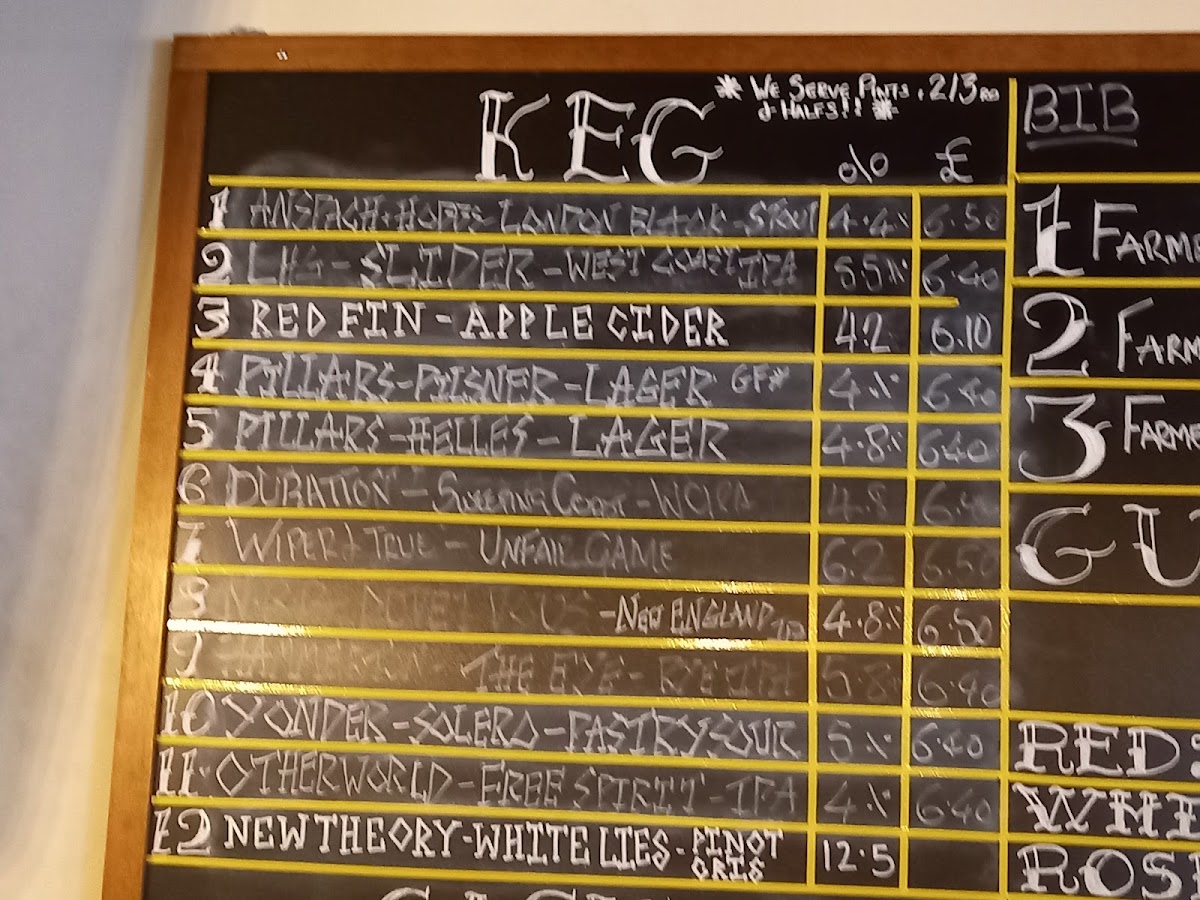 KEG
* WE SERVE PINTS, 2/3RD
& HALFS!! *
% £
1 ANSPACH + HOPPS - LONDON BLACK - STOUT 4.4% 6.50
2 LHG - SLIDER - WEST COAST IPA 5.5% 6.40
3 RED FIN - APPLE CIDER 4.2 6.10
4 PILLARS - PILSNER - LAGER GF* 4% 6.40
5 PILLARS - HELLES - LAGER 4.8% 640
6 DURATION - COAST - WCIPA 4.8
7 WIPER & TRUE - UNFAIR GAME 6.2 6.50
8 - NEW ENGLAND IPA 4.8% 6.50
9 - THE EYE - RYE IPA 5.8 6.40
10 YONDER - SOLERO - PASTRY SOUR 5% 6.40
11 OTHERWORLD - FREE SPIRIT - IPA 4% 6.40
12 NEW THEORY - WHITE LIES - PINOT GRIS 12.5
BIB
1 FARME
2 FARM
3 FARME
GU
RED
WHI
ROS